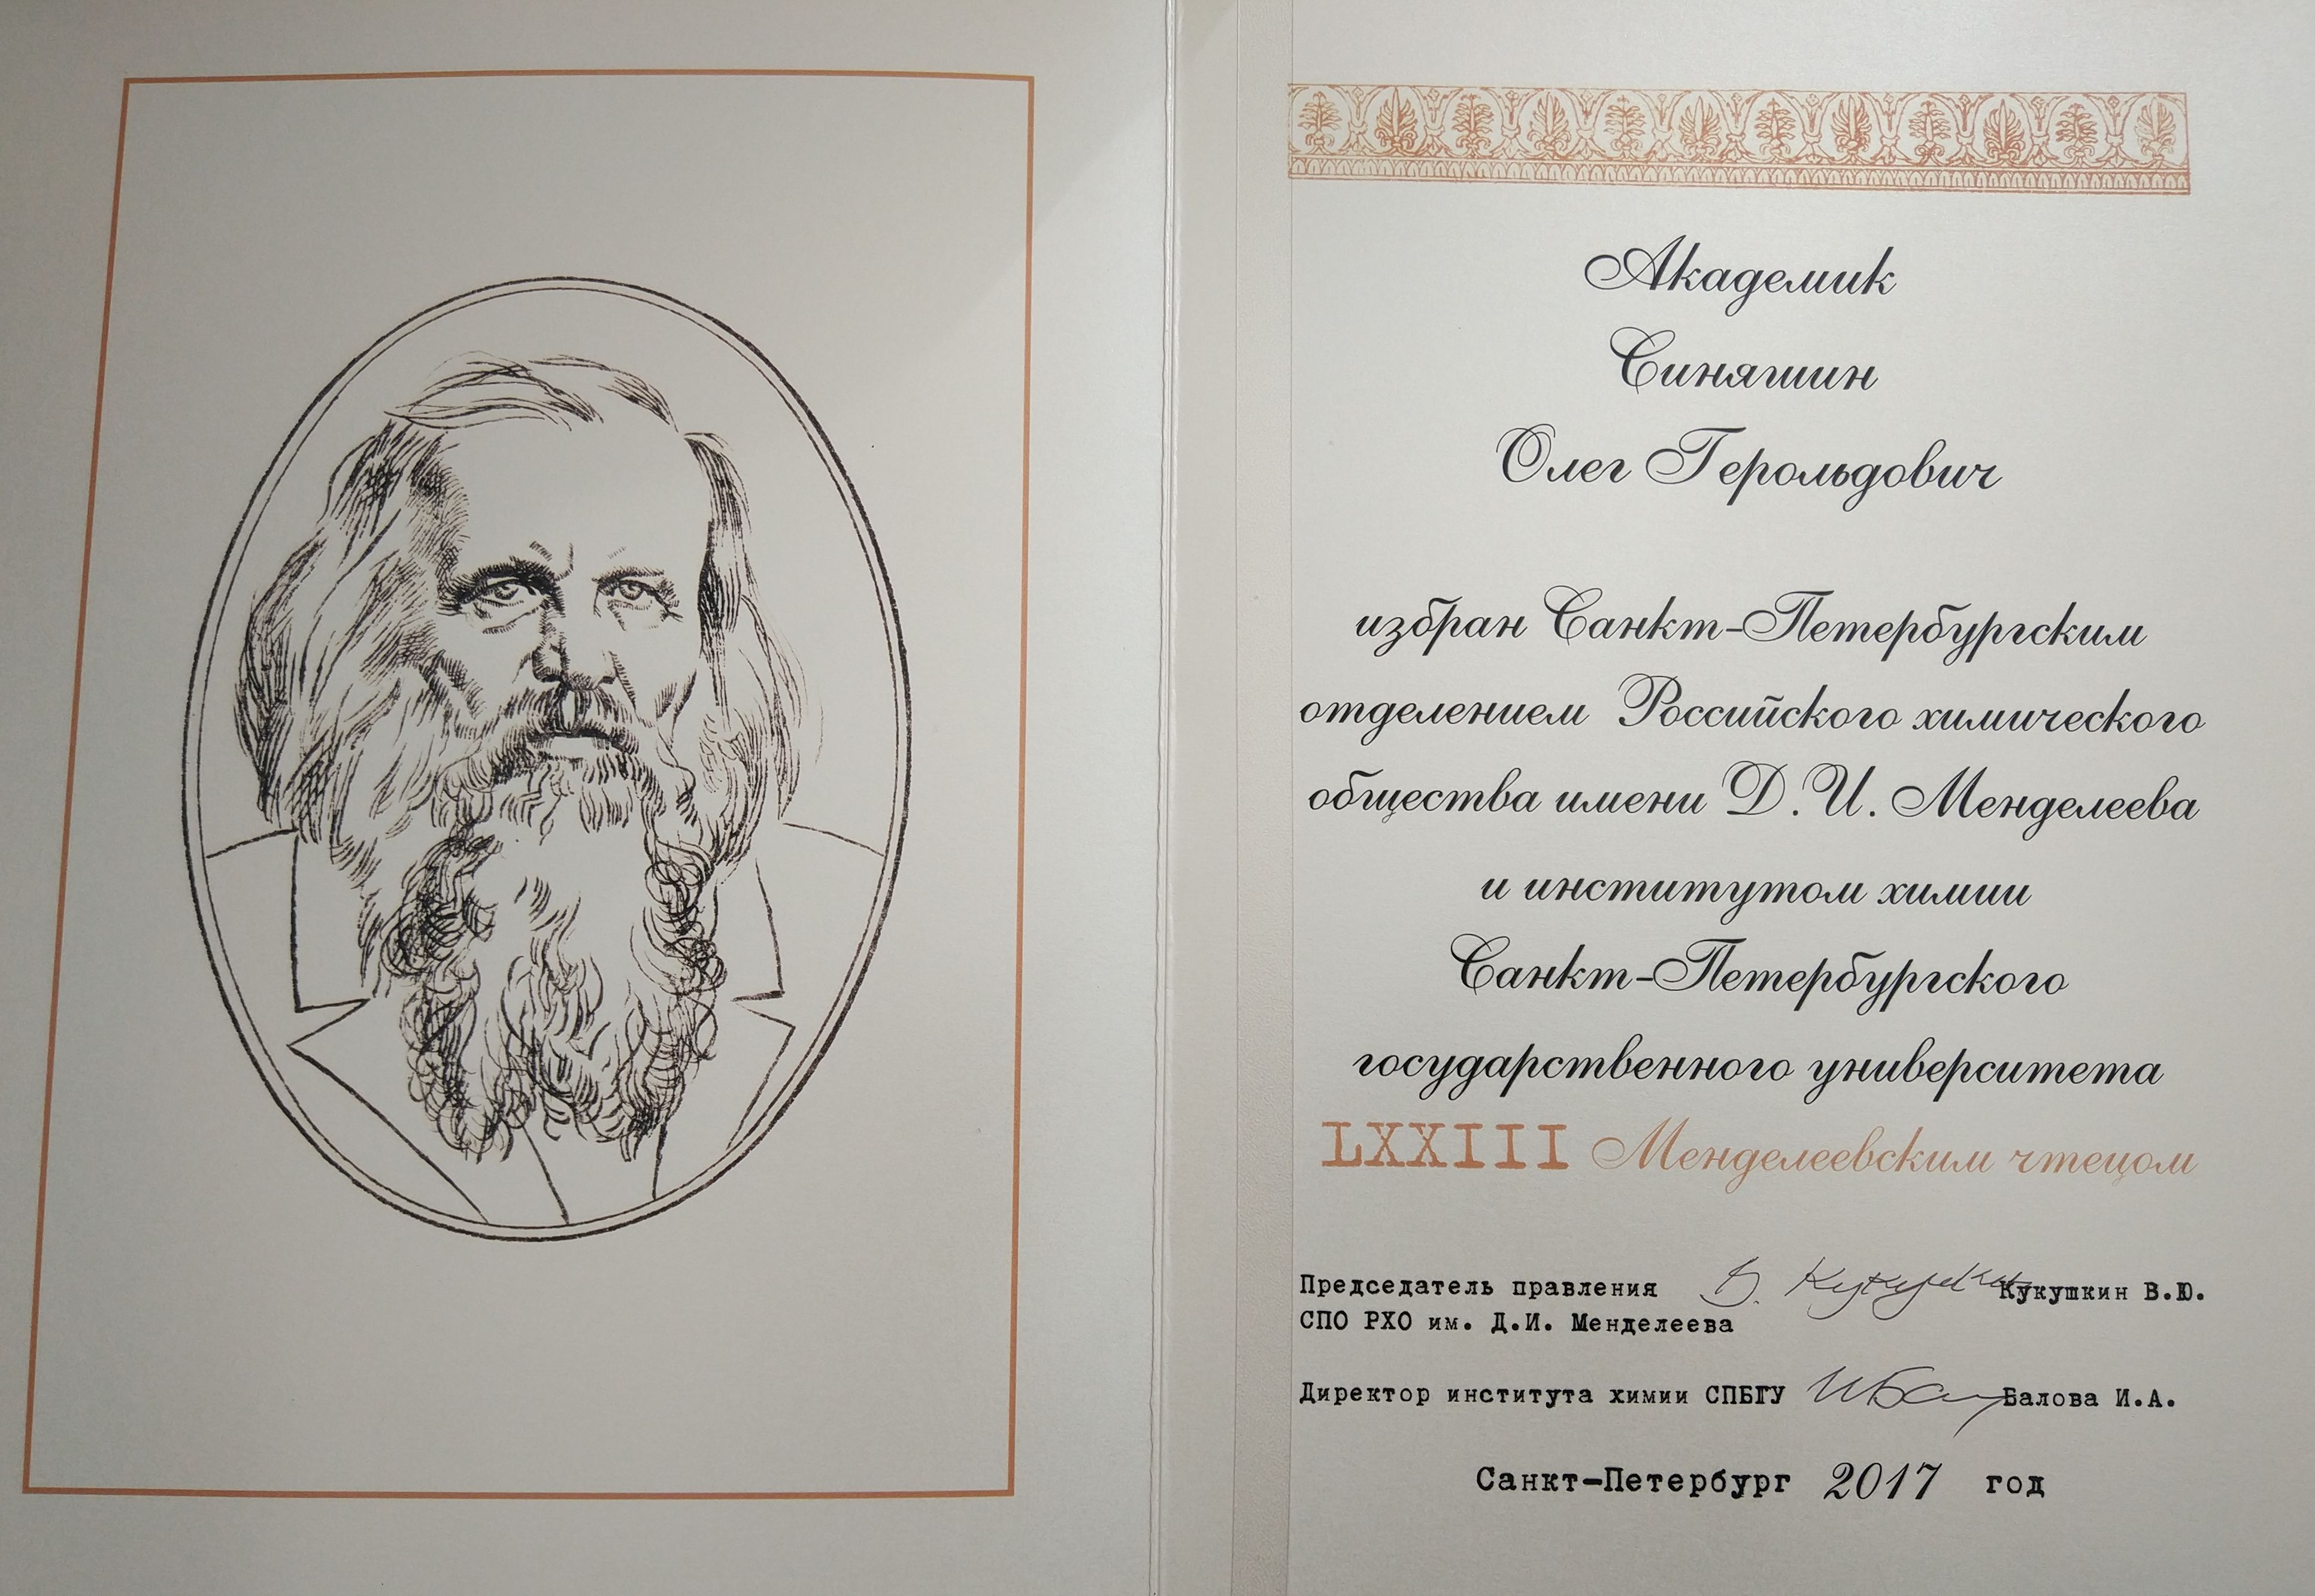 Академик
Синяшин
Олег Герольдович
избран Санкт-Петербургским
отделением Российского химического
общества имени Д.И. Менделеева
и институтом химии
Санкт-Петербургского
государственного университета
LXXIII Менделеевским чтецом
Председатель правления В. Кукушкин Кукушкин В.Ю.
СПО РХО им. Д.И. Менделеева
Директор института химии СПБГУ Балова И.А.
Санкт-Петербург 2017 год